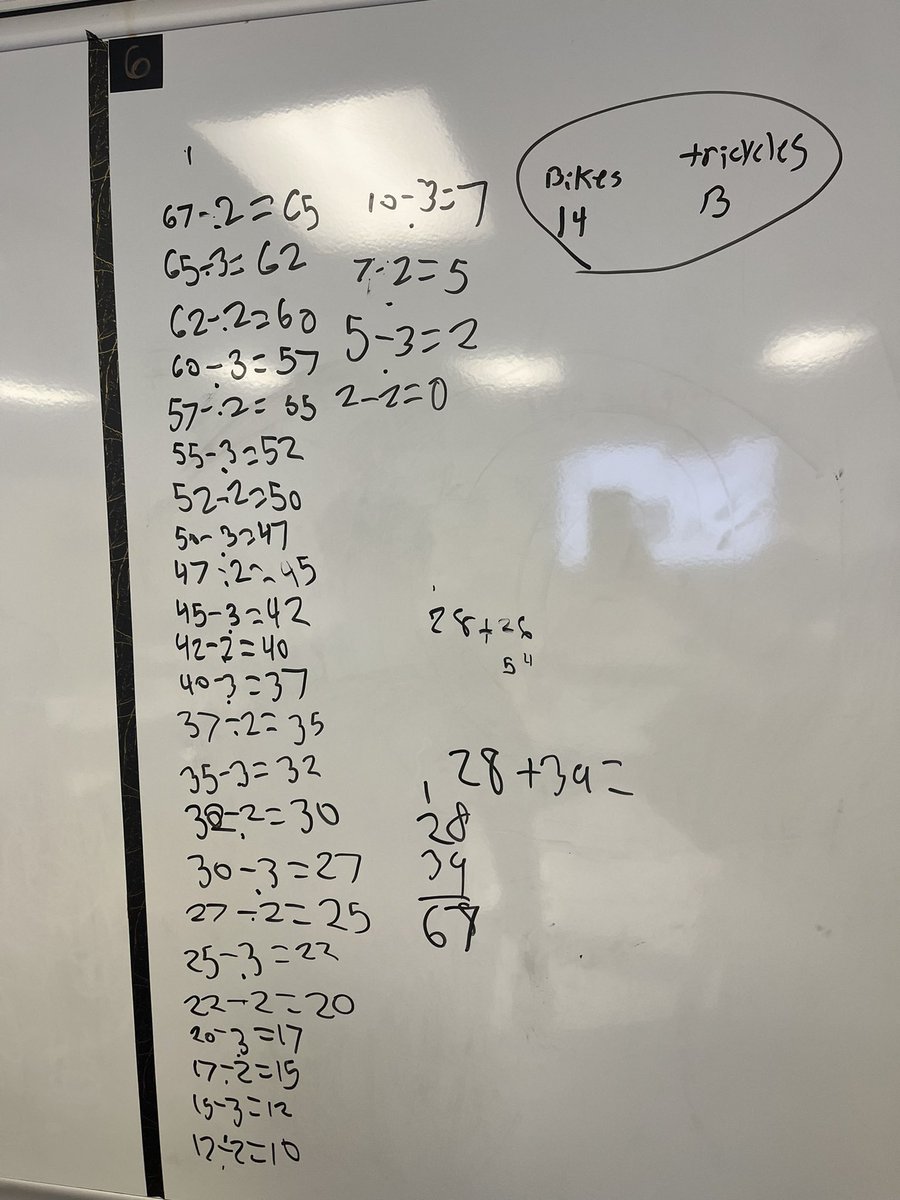 6
67-2=65
65-3=62
62-2=60
60-3=57
57-2=55
55-3=52
52-2=50
50-3=47
47-2=45
45-3=42
42-2=40
40-3=37
37-2=35
35-3=32
32-2=30
30-3=27
27-2=25
25-3=22
22-2=20
20-3=17
17-2=15
15-3=12
12-2=10
10-3=7
7-2=5
5-3=2
2-2=0
Bikes tricycles
14 13
28+26
54
28+39=
1
28
39
67